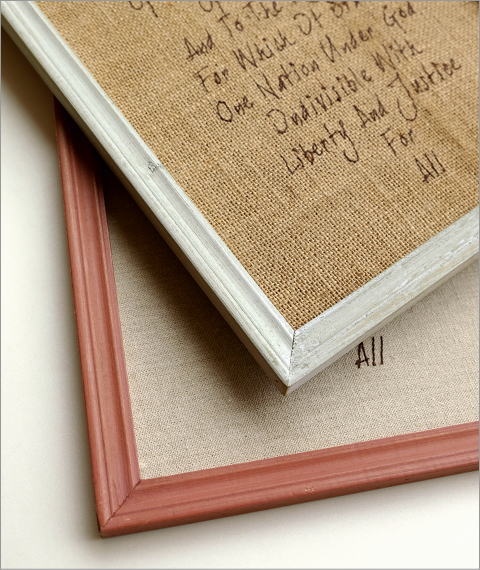 And To The
For Which It
One Nation Under God
Indivisible With
Liberty And Justice
For
All
All